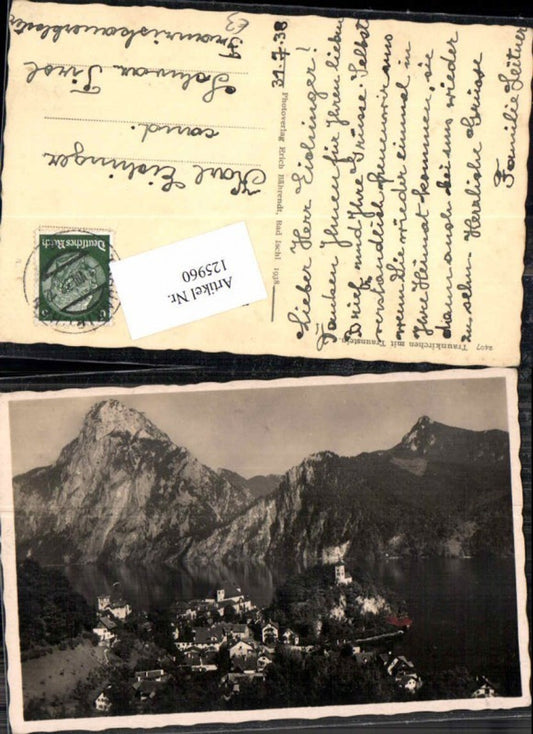 Lieber Herr Eichinger!
Danken Ihnen für Ihren lieben
Brief und Ihre Grüsse. Selbst
verständlich freuen wir uns
wenn Sie wieder einmal in
Ihre Heimat kommen, sie
dann auch bei uns wieder
zu sehn. Herzliche Grüsse
Familie Leitner
31.7.38
Photoverlag Erich Bährendt, Bad Ischl 1938
2407 Traunkirchen mit Traunstein
Karl Eichinger
cand.
Schwaz Tirol
Deutsches Reich
Artikel Nr.
125960